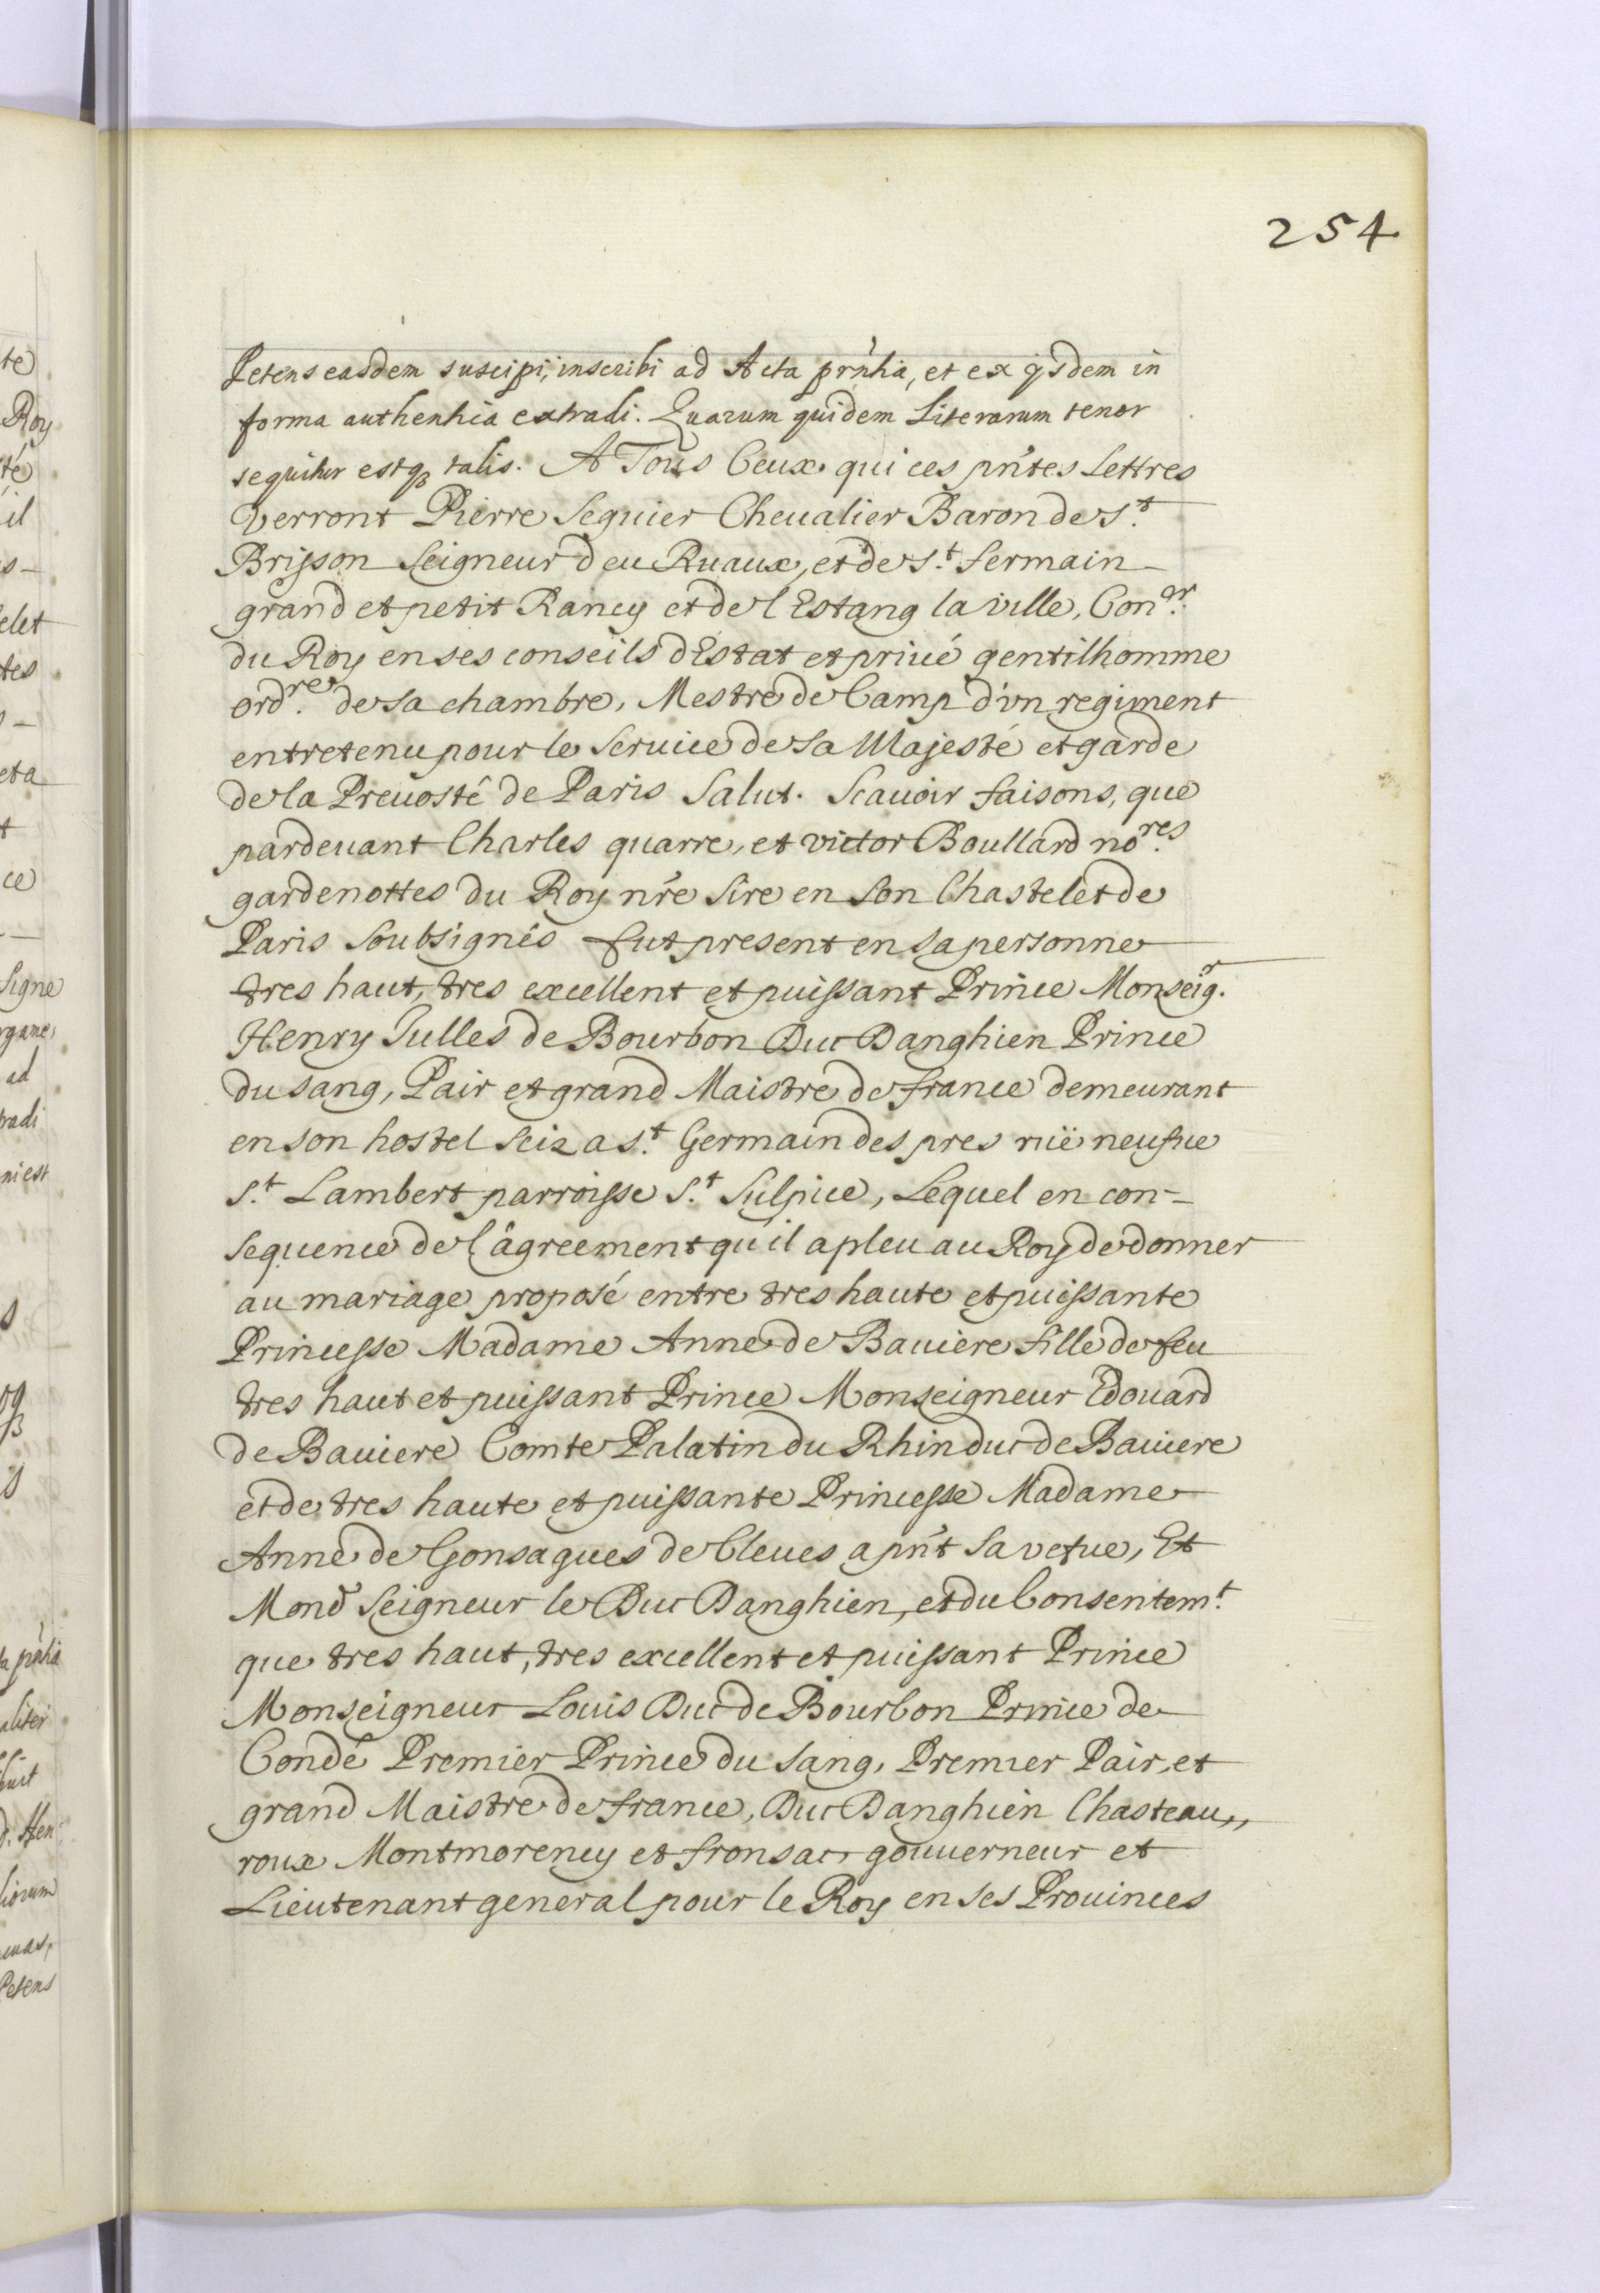 254
Petens easdem suscipi, inscribi ad Acta prn̄tia, et ex ijsdem in
forma authentica extradi. Quarum quidem Literarum tenor
sequitur estqꝫ talis. A Tous Ceux qui ces pñtes Lettres
Verront Pierre Seguier Cheualier Baron de S.t
Brisson Seigneur deu Ruaux, et de S.t fermain
grand et petit Rancy et de l'Estang la ville, Con.er
du Roy en ses conseils d'Estat et priué gentilhomme
ord.re de sa chambre, Mestre de Camp d'vn regiment
entretenu pour le Seruice de Sa Majesté et garde
de la Preuosté de Paris Salut. Scauoir faisons, que
pardeuant Charles quarre, et victor Boullard no.res
gardenottes du Roy nr̃e Sire en Son Chastelet de
Paris Soubsignés fut present en sa personne
tres haut, tres excellent et puissant Prince Monseig.r
Henry Julles de Bourbon Duc Danghien Prince
du sang, Pair et grand Maistre de france demeurant
en son hostel Seiz a S.t Germain des pres ruë neufue
S.t Lambert parroisse S.t Sulpice, Lequel en con-
sequence de l'âgreement qu'il a pleu au Roy de donner
au mariage proposé entre tres haute et puissante
Princesse Madame Anne de Bauiere fille de feu
tres haut et puissant Prince Monseigneur Edouard
de Bauiere Comte Palatin du Rhin duc de Bauiere
et de tres haute et puissante Princesse Madame
Anne de Gonsagues de Cleues a pñt Sa vefue, Et
Mond̃ Seigneur le Duc Danghien, et du Consentem.t
que tres haut, tres excellent et puissant Prince
Monseigneur Louis Duc de Bourbon Prince de
Condé Premier Prince du Sang, Premier Pair, et
grand Maistre de france, Duc Danghien Chasteau,,
roux Montmorency et fronsac, gouuerneur et
Lieutenant general pour le Roy en ses Prouinces